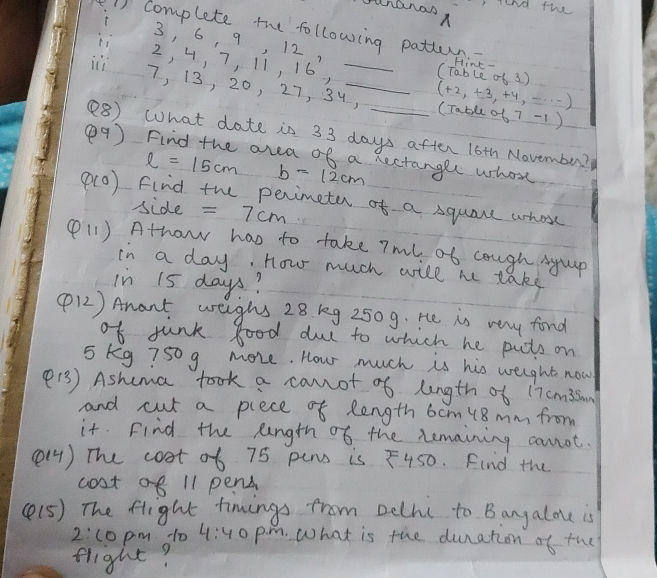 find the
Q7) Complete the following pattern -
i 3, 6, 9, 12, ___ (Hint - Table of 3)
ii 2, 4, 7, 11, 16, ___ (+2, +3, +4, ....)
iii 7, 13, 20, 27, 34, ___ (Table of 7 -1)
Q8) What date is 33 days after 16th November?
Q9) Find the area of a rectangle whose
l = 15cm b = 12cm
Q10) Find the perimeter of a square whose
side = 7cm.
Q11) Atharv has to take 7ml of cough syrup
in a day. How much will he take
in 15 days?
Q12) Anant weighs 28 kg 250 g. He is very fond
of junk food due to which he puts on
5 kg 750 g more. How much is his weight now
Q13) Ashima took a carrot of length of 17cm35mm
and cut a piece of length 6cm 48 mm from
it. Find the length of the remaining carrot.
Q14) The cost of 75 pens is ₹450. Find the
cost of 11 pens
Q15) The flight timings from Delhi to Bangalore is
2:10 pm to 4:40 p.m. What is the duration of the
flight?